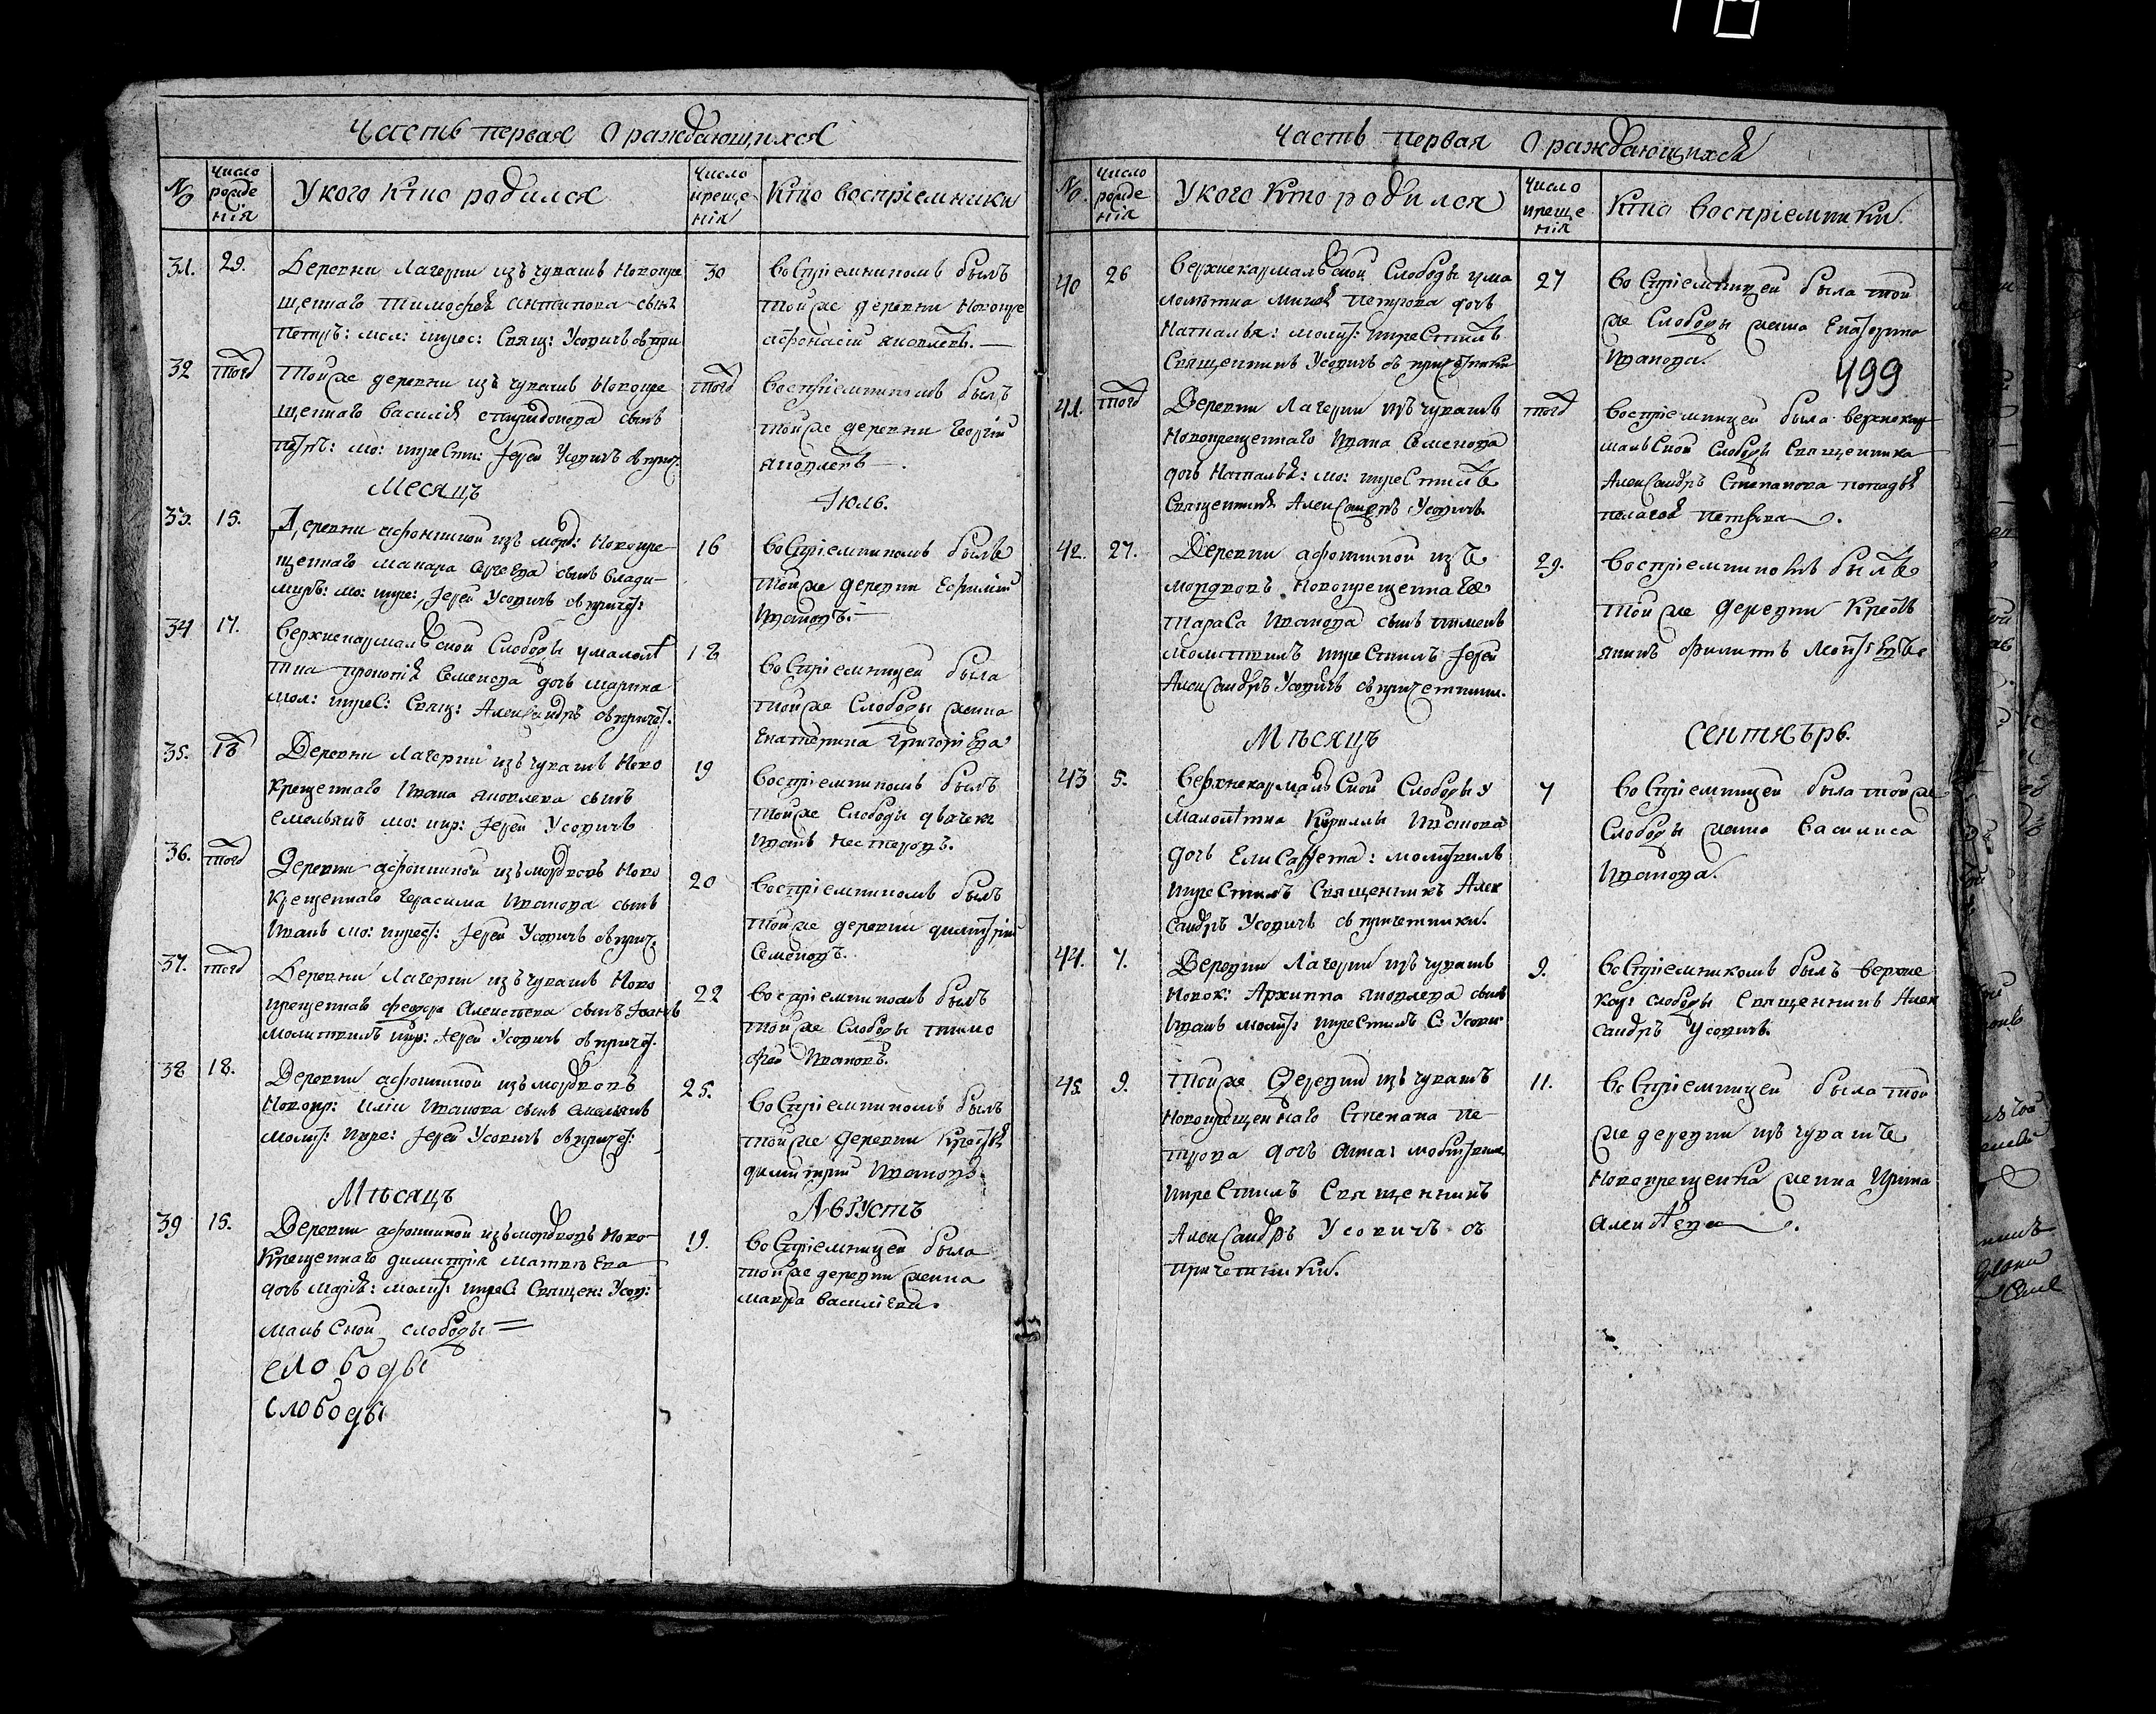 Часть первая О раждающихся
№
Число рожде нія
У кого кто родился
Число креще нія
Кто воспріемники
31. 29.
Деревни Лагерки изъ чувашъ новокре
щеннаго Тимофея Антипова сынъ
Петръ: мол: крес: Свящ: Усовичъ съ при
30
воспріемникомъ былъ
той же деревни новокре
Афонасій Яковлевъ.
32 того
Той же деревни изъ чувашъ новокре
щеннаго Василія Спиридонова сынъ
Петръ: мо: крести: Іерей Усовичъ съ прич:
того
воспріемникомъ былъ
той же деревни Георгій
Яковлевъ
Месяцъ
Іюль.
33. 15.
Деревни Афонкиной изъ морд: новокре
щеннаго Макара Сергеева сынъ Влади
миръ: мо: кре: Іерей Усовичъ съ причет:
16
воспріемникомъ былъ
той же деревни Ефимій
Ивановъ.
34 17.
Верхнекармальской Слободы у малолѣ
тка Прокопія Семенова дочь Марина
мол: крес: Свящ: Александръ съ причет.
18
воспріемницей была
той же Слободы жена
Екатерина Григорiева
35. 18
Деревни Лагерки изъ чувашъ ново
крещеннаго Ивана Яковлева сынъ
Емельянъ мо: кр: Іерей Усовичъ
19
воспріемникомъ былъ
той же Слободы дьячекъ
Иванъ Нестеровъ.
36. того
Деревни Афонкиной изъ мордвовъ ново
крещеннаго Герасима Иванова сынъ
Иванъ мо: крест: Іерей Усовичъ съ прич.
20
воспріемникомъ былъ
той же деревни Димитрій
Семеновъ.
37. того
Деревни Лагерки изъ чувашъ ново
крещеннаго Феодора Алексѣева сынъ Іоаннъ
молитвилъ кр: Іерей Усовичъ съ причет.
22
воспріемникомъ былъ
той же Слободы Тимо
фей Ивановъ.
38 18.
Деревни Афонкиной изъ мордвовъ
новокр: Иліи Иванова сынъ Емельянъ
молит: кре: Іерей Усовичъ съ причет:
25.
воспріемникомъ былъ
той же деревни Крестья
Димитрій Ивановъ
Мѣсяцъ
Августъ
39 15.
Деревни Афонкиной изъ мордвовъ ново
крещеннаго Димитрія Матвѣева
дочь Марія: молит: крес: Священ: Усов:
19.
воспріемницей была
той же деревни жена
Мавра Василіева.
мальской слободы
слободы
слободы
Часть первая О раждающихся
№.
Число рожде нія
У кого кто родился
Число креще нія
Кто воспріемники.
40 26
Верхнекармальской Слободы у ма
лолѣтка Михея Петрова дочь
Наталья: молит: крестилъ
Священникъ Усовичъ съ причетники
27
воспріемницей была той
же Слободы жена Екатерина
Иванова.
499
41. того
Деревни Лагерки изъ чувашъ
новокрещеннаго Ивана Семенова
дочь Наталья: мо: крестилъ
Священникъ Александръ Усовичъ.
того
воспріемницей была верхнекар
мальской Слободы Священника
Александръ Степанова попадья
Пелагея Петрова.
42. 27.
Деревни Афонкиной изъ
мордвовъ новокрещеннаго
Тараса Иванова сынъ Пименъ
молитвилъ крестилъ Іерей
Александръ Усовичъ съ причетники.
29.
воспріемникомъ былъ
той же деревни Кресть
янинъ Филипъ
Мѣсяцъ
Сентябрь.
43 5.
Верхнекармальской Слободы у
малолѣтка Кириллы Иванова
дочь Елисавета: молитвилъ
крестилъ Священникъ Алек
сандръ Усовичъ съ причетники.
7
воспріемницей была той же
Слободы жена Василиса
Иванова.
44. 7.
Деревни Лагерки изъ чувашъ
новок: Архиппа Яковлева сынъ
Иванъ молит: крестилъ С: Усови
9.
воспріемникомъ былъ верхне
кар: слободы Священникъ Алек
сандръ Усовичъ.
45. 9.
Той же Деревни изъ чувашъ
новокрещеннаго Степана Пе
трова дочь Анна: молитвил
крестилъ Священникъ
Александръ Усовичъ съ
причетники.
11.
воспріемницей была той
же деревни изъ чувашъ
новокрещенка жена Ирина
Алексѣева.